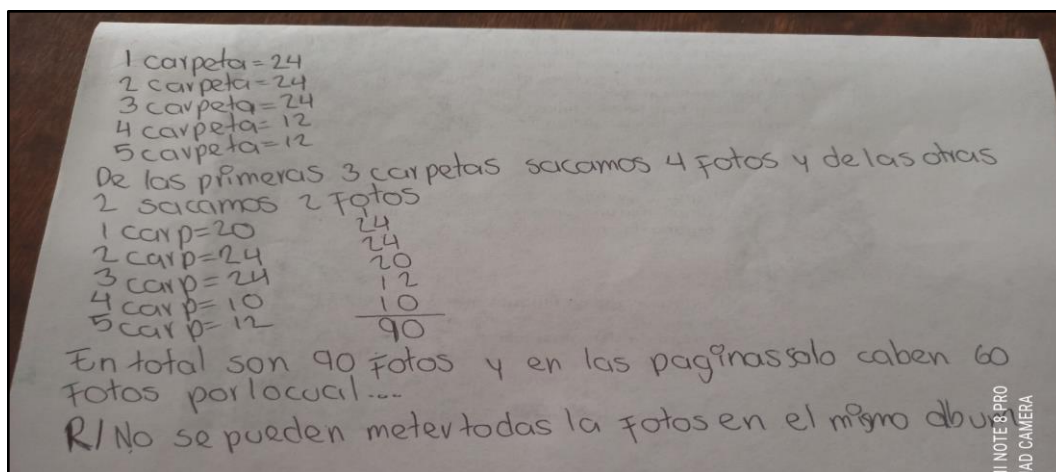 1 carpeta = 24
2 carpeta = 24
3 carpeta = 24
4 carpeta = 12
5 carpeta = 12
De las primeras 3 carpetas sacamos 4 fotos y de las otras
2 sacamos 2 fotos
1 carp = 20
2 carp = 24
3 carp = 24
4 carp = 10
5 carp = 12
24
24
20
12
10
90
En total son 90 fotos y en las paginas solo caben 60
fotos por lo cual...
R/ No se pueden meter todas la fotos en el mismo album
I NOTE 8 PRO
AD CAMERA